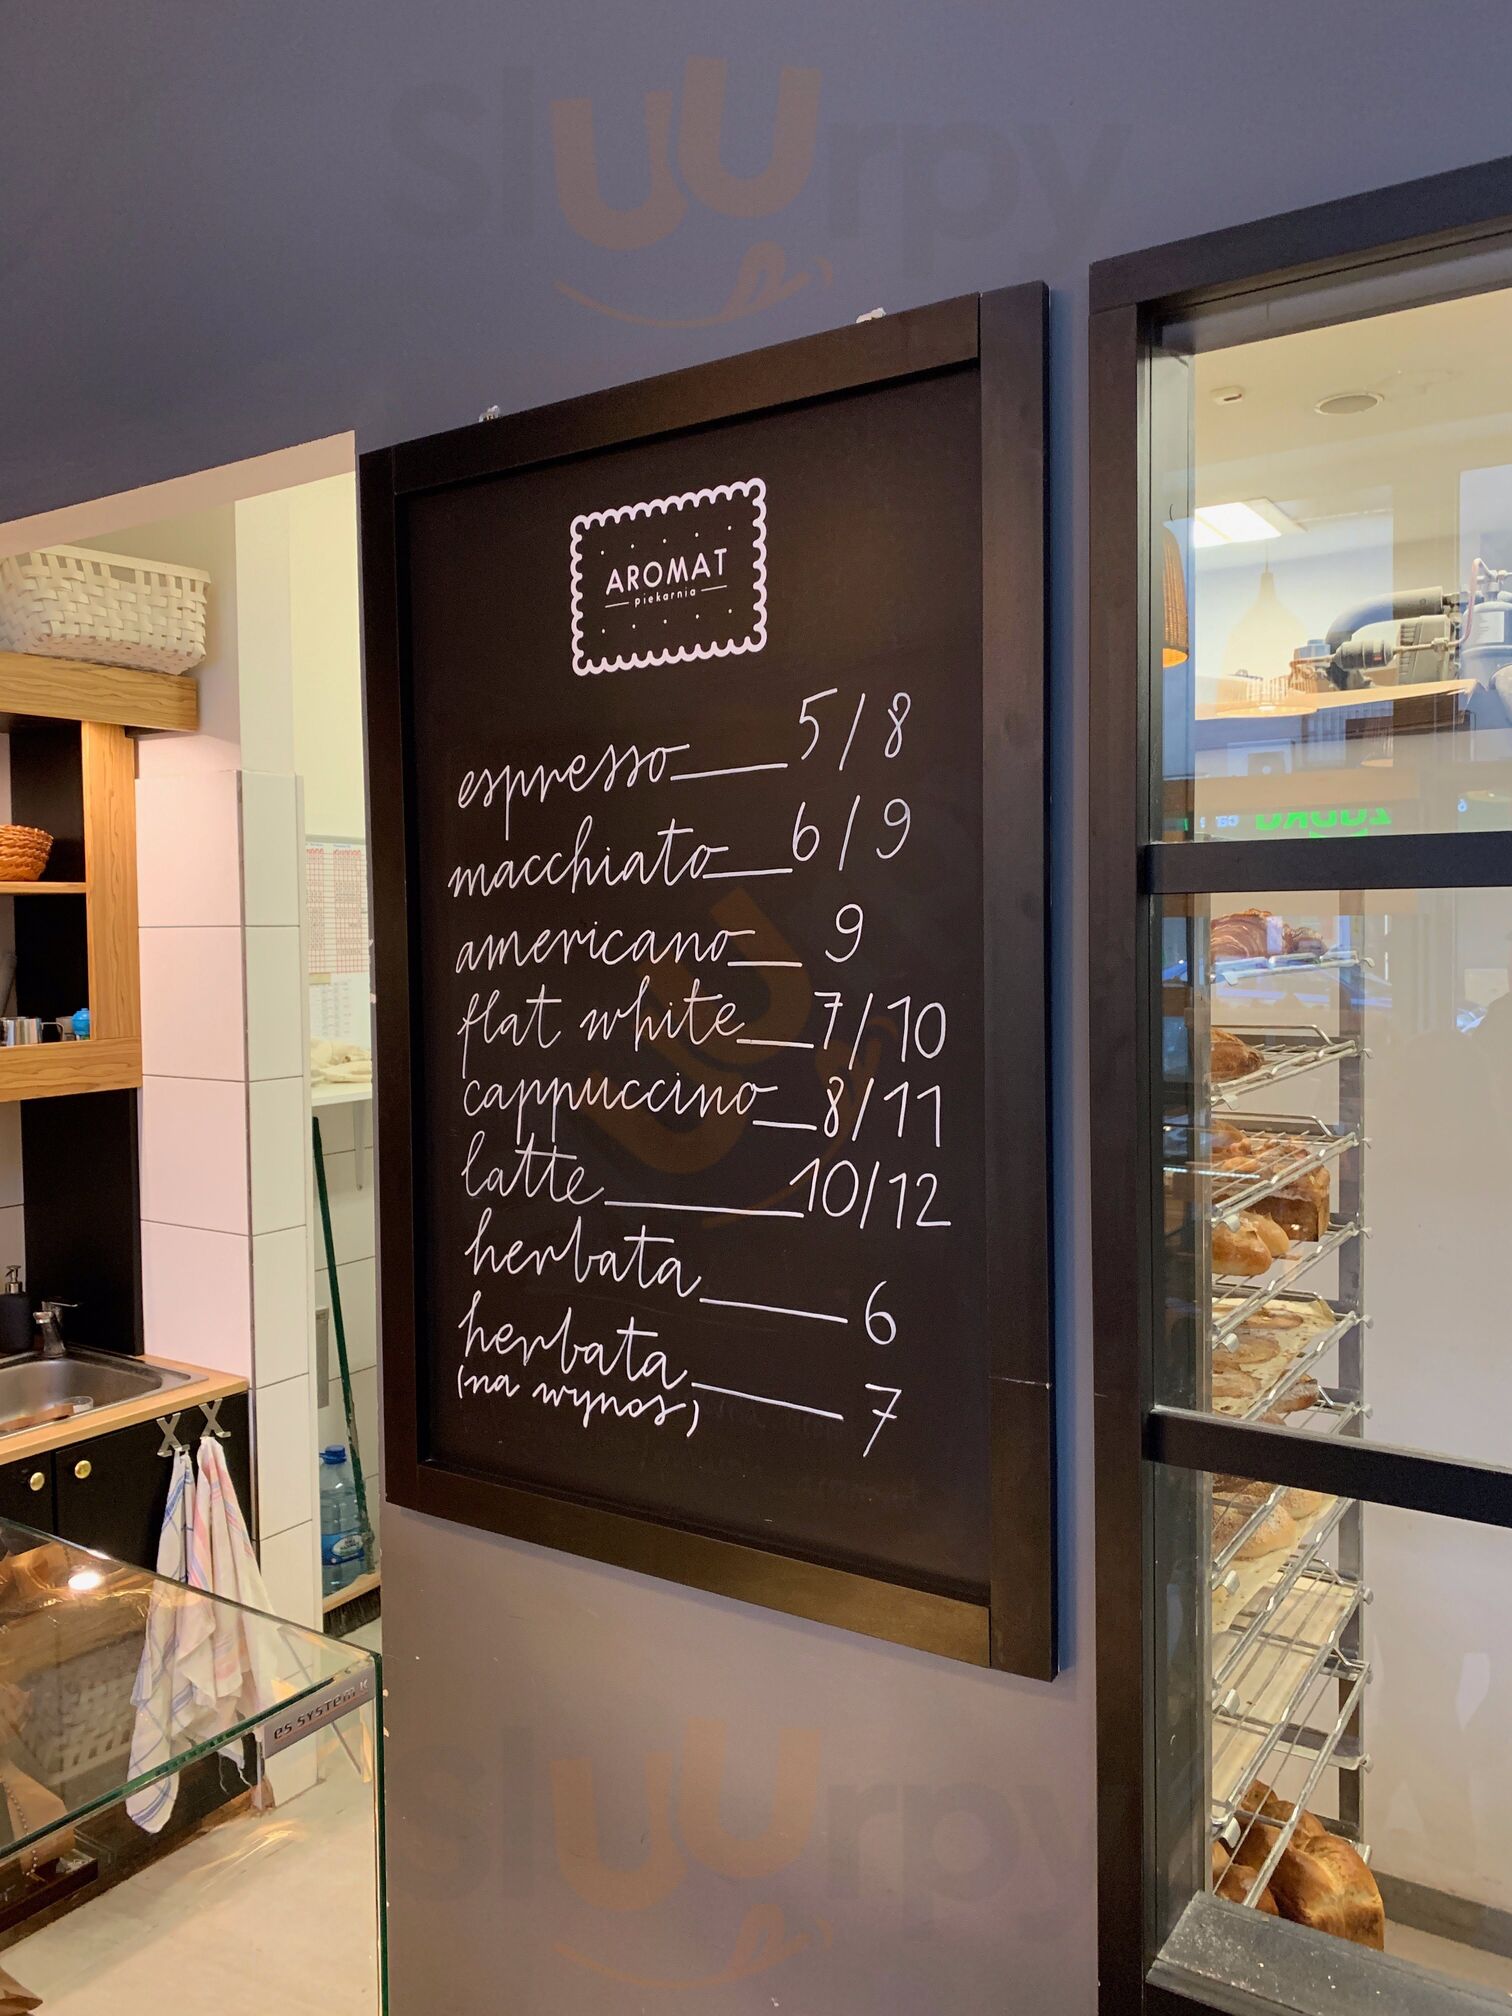 Sluurpy
AROMAT
piekarnia
espresso 5/8
macchiato 6/9
americano 9
flat white 7/10
cappuccino 8/11
latte 10/12
herbata 6
herbata 7
(na wynos)
es SYSTEM K
Sluurpy